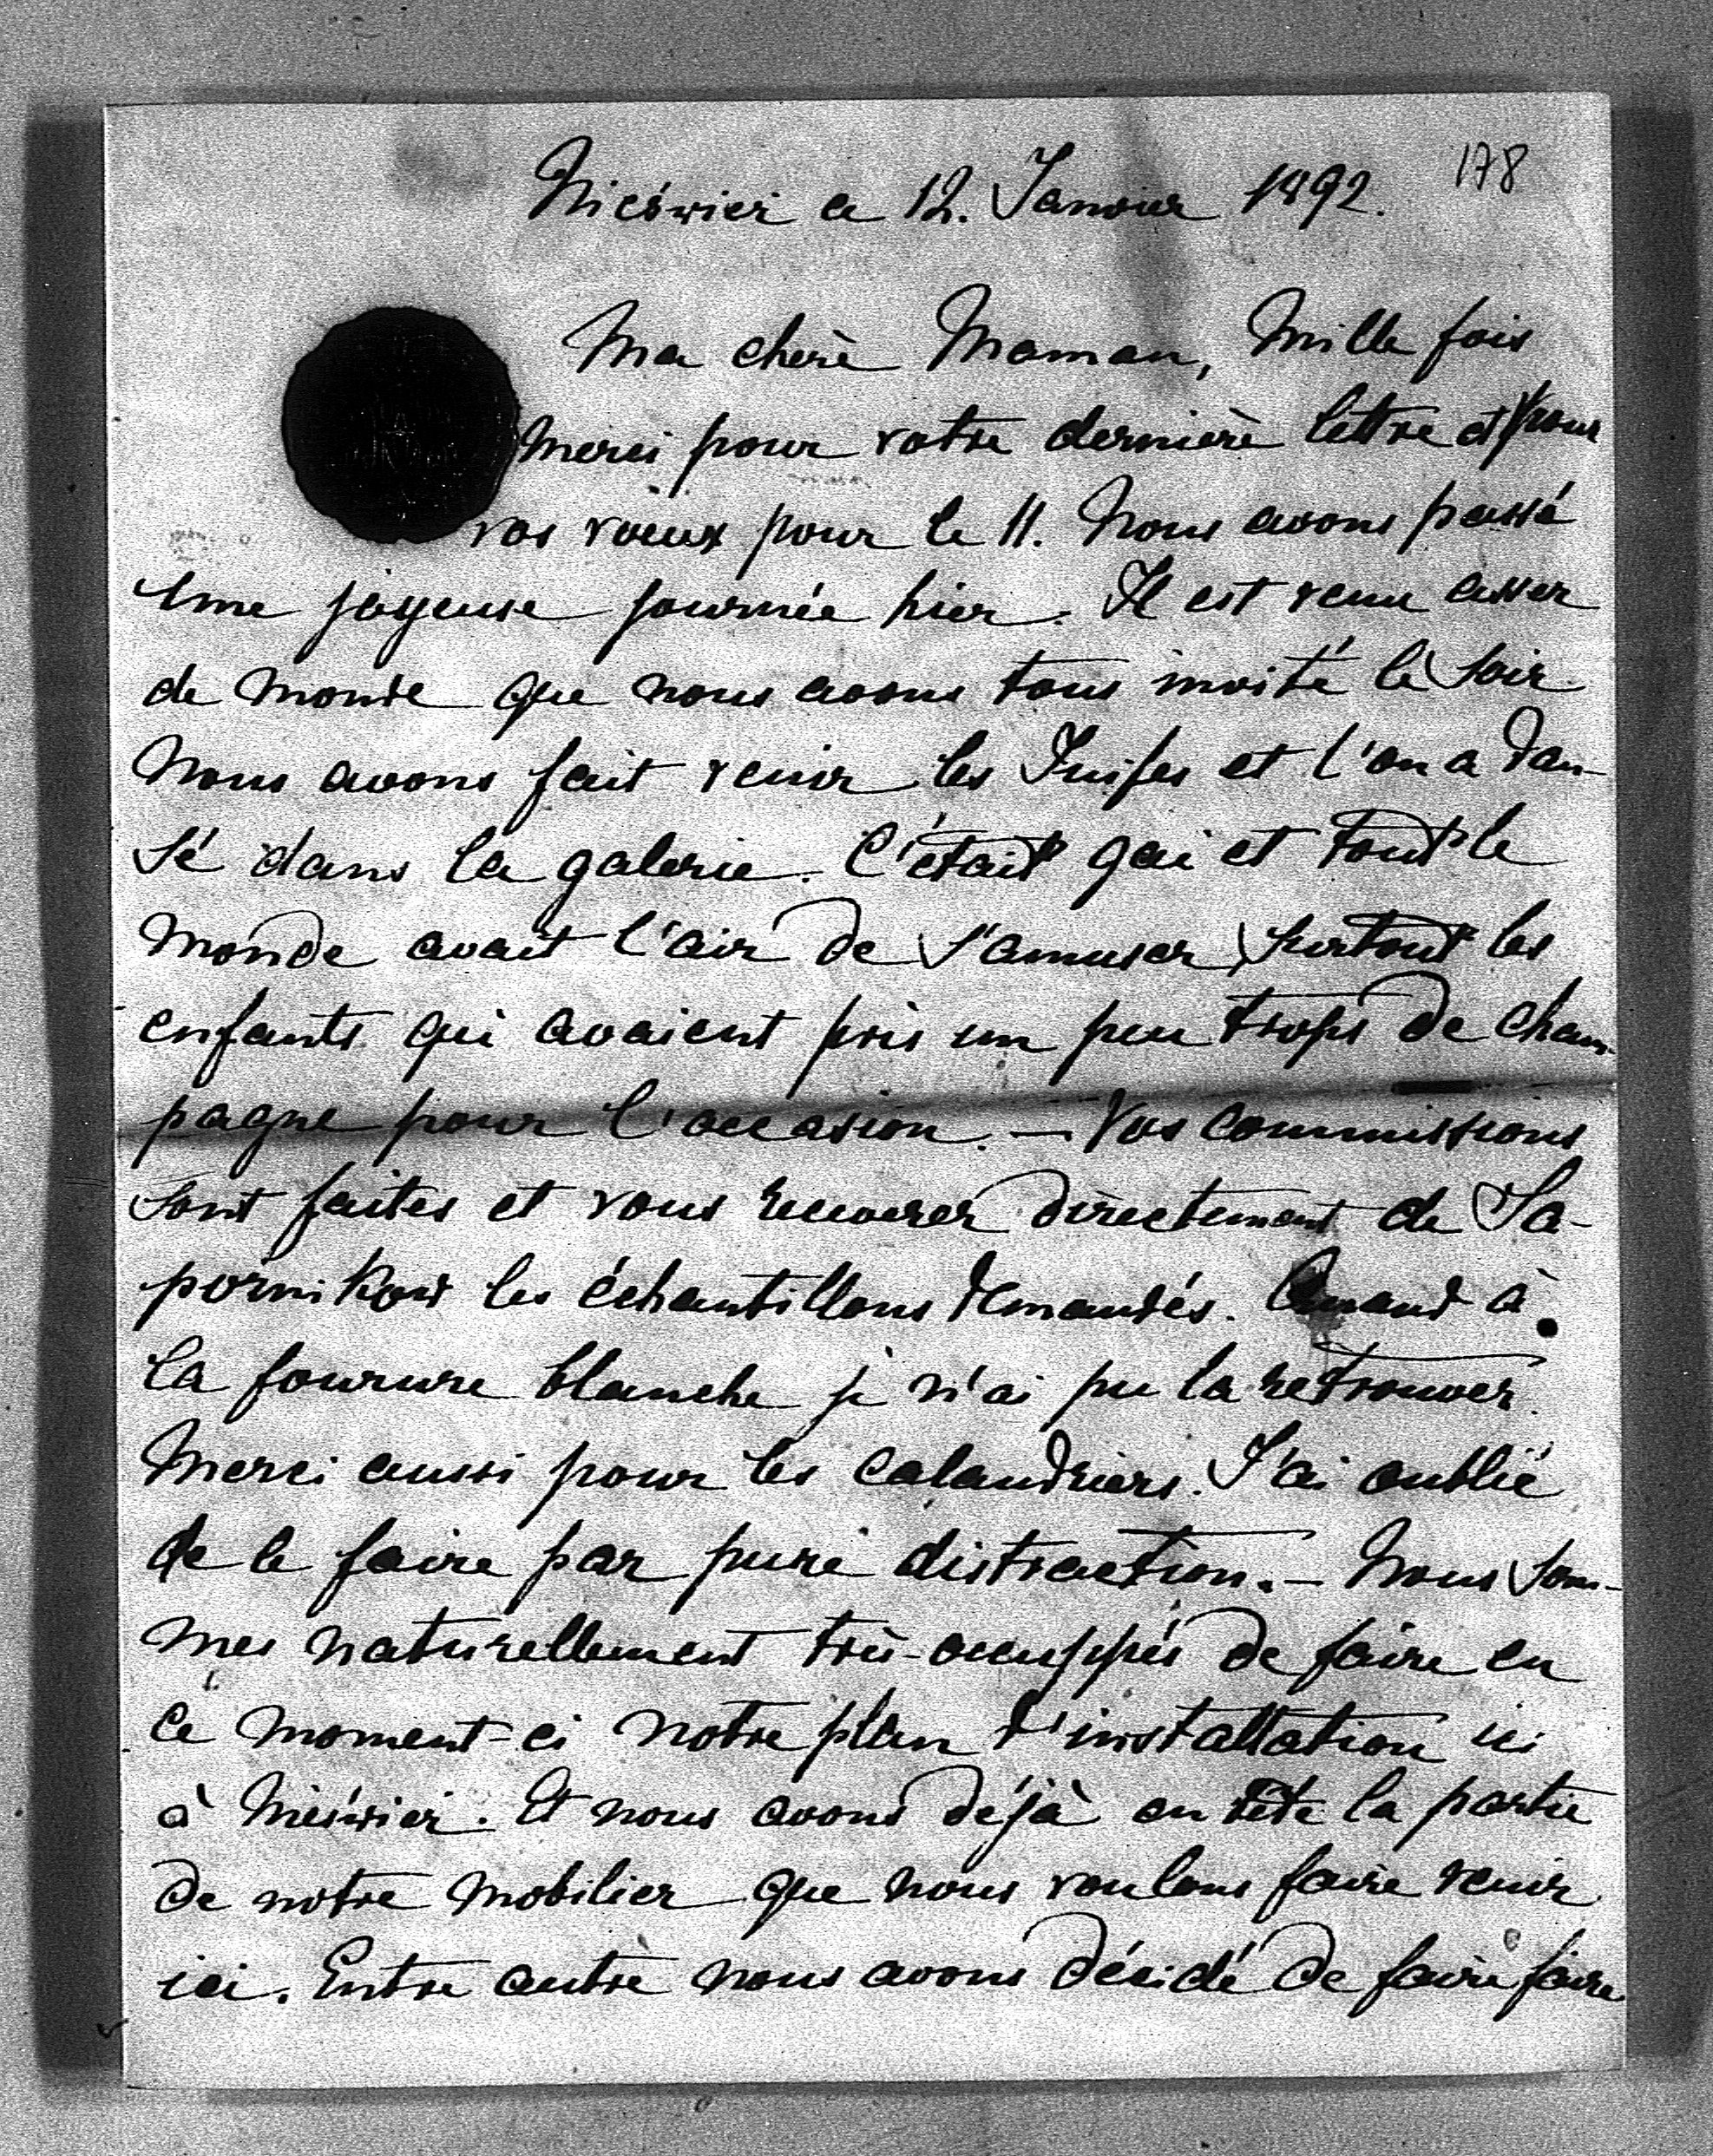 178
Nieświez ce 12. Janvier 1892.
Ma cherè Maman, Mille fois
merci pour votre dernierè lettre et pour
vos voeux pour le 11. Nous avons passé
une joyeuse journée hier. Il est venu assez
de monde que nous avons tous invité le soir.
Nous avons fait venir les Juifes et l'on a dan-
sé dans la galerie. C'était gai et tout le
monde avait l'air de s'amuser, surtout les
enfants qui avaient pris un peu trops de cham-
pagne pour l'occasion. — Vos commissions
sont faites et vous recevrez directement de Sa-
pornikow les échantillons demandés. Quand à
la fourure blanche je n'ai pu la retrouver.
Merci aussi pour les calandriers. J'ai oublié
de le faire par pure distraction. — Nous som-
mes naturellement très-occuppés de faire en
ce moment-ci notre plan d'installation ici
à Nieświez. Et nous avons déjà en tête la partie
de notre mobilier que nous voulons faire venir
ici. Entre autre nous avons décidé de faire faire